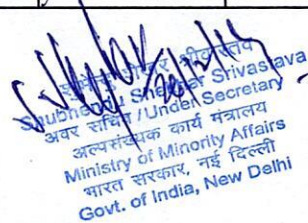 श्रीवास्तव
Shekhar Srivastava
अवर सचिव / Under Secretary
अल्पसंख्यक कार्य मंत्रालय
Ministry of Minority Affairs
भारत सरकार, नई दिल्ली
Govt. of India, New Delhi